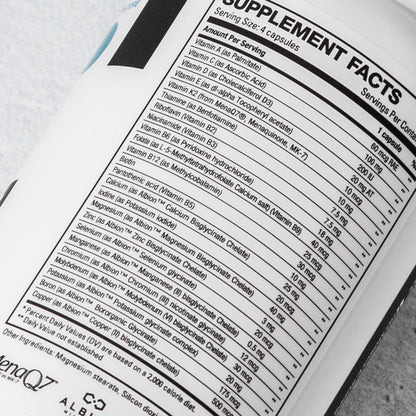 SUPPLEMENT FACTS
Serving Size: 4 capsules
Servings Per Co
Amount Per Serving
1 capsule
Vitamin A (as Palmitate)
Vitamin C (as Ascorbic Acid)
Vitamin D (as Cholecalciferol D3)
Vitamin E (as dl-alpha Tocopheryl acetate)
Vitamin K2 (from MenaQ7®, Menaquinone, MK-7)
Thiamine (as Benfotiamine)
Riboflavin (Vitamin B2)
Niacinamide (Vitamin B3)
Vitamin B6 (as Pyridoxine hydrochloride)
Folate (as L-5-Methyltetrahydrofolate Calcium salt) (Vitamin B9)
Vitamin B12 (as Methylcobalamin)
Biotin
Pantothenic acid (Vitamin B5)
Calcium (as Albion™ Calcium Bisglycinate Chelate)
Iodine (as Potassium iodide)
Magnesium (as Albion™ Magnesium Bisglycinate Chelate)
Zinc (as Albion™ Zinc Bisglycinate Chelate)
Selenium (as Albion™ Selenium Glycinate)
Manganese (as Albion™ Manganese (II) bisglycinate chelate)
Chromium (as Albion™ Chromium (III) nicotinate glycinate)
Molybdenum (as Albion™ Molybdenum (VI) bisglycinate chelate)
Potassium (as Albion™ Potassium glycinate complex)
Boron (as Albion™ Bororganic Glycinate)
Copper (as Albion™ Copper (II) bisglycinate chelate)
60 mcg RAE
100 mg
200 IU
20 mg AT
10 mcg
10 mg
7.5 mg
7.5 mg
* Percent Daily Values (DV) are based on a 2,000 calorie diet.
** Daily Value not established
Other Ingredients: Magnesium stearate, Silicon dioxide
MenaQ7
ALBI